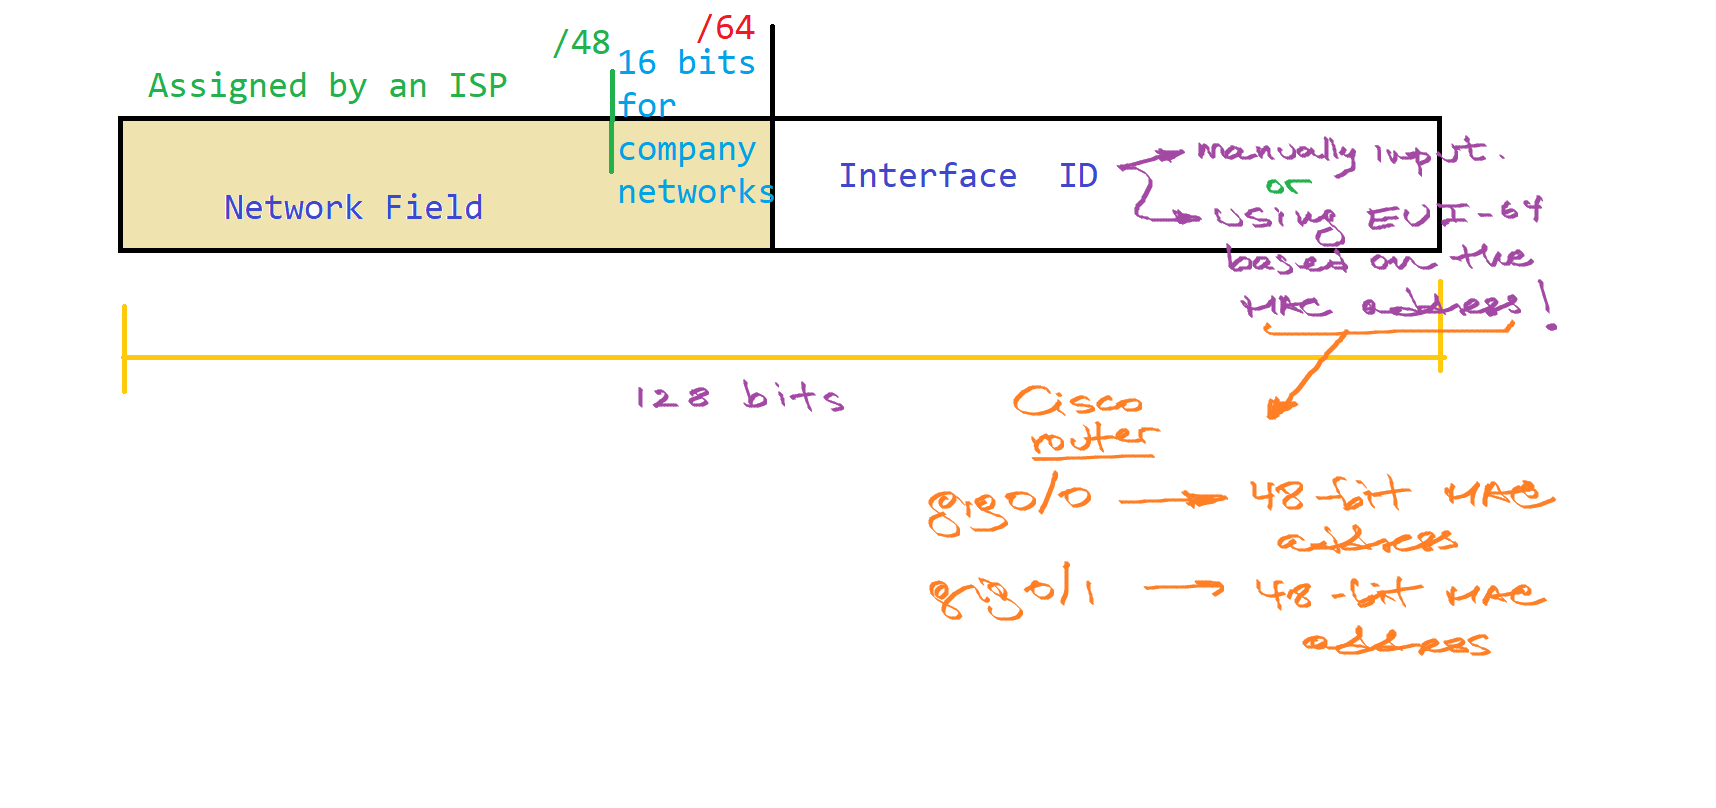 /64
/48
16 bits
Assigned by an ISP
for
company
networks
Network Field
Interface ID
manually input.
or
using EUI-64
based on the
MAC address!
128 bits
Cisco
router
gig0/0
48-bit MAC
address
gig0/1
48-bit MAC
address